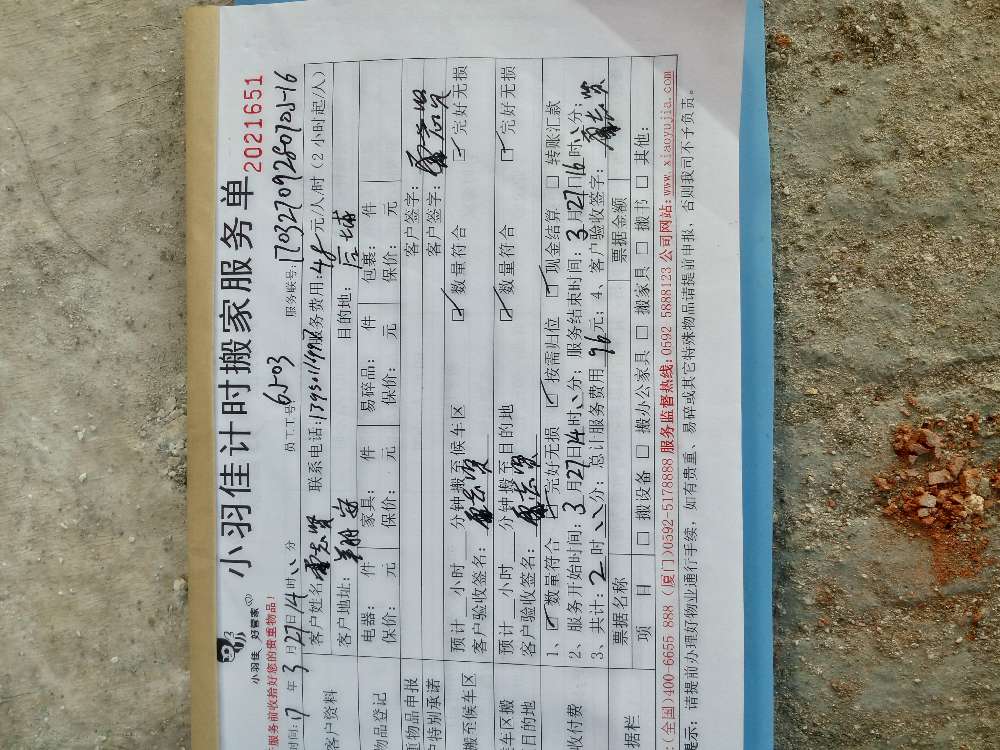 小羽佳计时搬家服务单
2021651
小羽佳 好管家
服务前收拾好您的贵重物品!
时间: 17 年 3 月 27 日 14 时 分 员工工号 6503 服务联号:
客户资料 客户姓名 联系电话: 服务费用: 48 元/人/时 (2 小时起/人)
客户地址: 翔安 目的地:
物品登记 电器: 件 家具: 件 易碎品: 件 包裹: 件
保价: 元 保价: 元 保价: 元 保价: 元
重物品申报 客户签字:
户特别承诺 客户签字:
搬至候车区 预计 小时 分钟搬至候车区 ☑ 数量符合 ☑ 完好无损
客户验收签名:
车区搬 预计 小时 分钟搬至目的地 ☑ 数量符合 ☑ 完好无损
目的地 客户验收签名:
收付费 1、☑ 数量符合 ☑ 完好无损 ☑ 按需归位 ☑ 现金结算 □ 转账汇款
2、服务开始时间: 3 月 27 日 14 时 分; 服务结束时间: 3 月 27 日 16 时 分;
3、共计: 2 时 分; 总计服务费用 96 元; 4、客户验收签字:
据栏 票据名称 票据金额
项 目 □ 搬设备 □ 搬办公家具 □ 搬家具 □ 搬书 □ 其他:
:(全国)400-6655 888 (厦门)0592-5178888 服务监督热线:0592 5888123 公司网站:www.xiaoyujia.com
提示: 请提前办理好物业通行手续, 如有贵重、易碎或其它特殊物品请提前申报、否则我司不予负责。